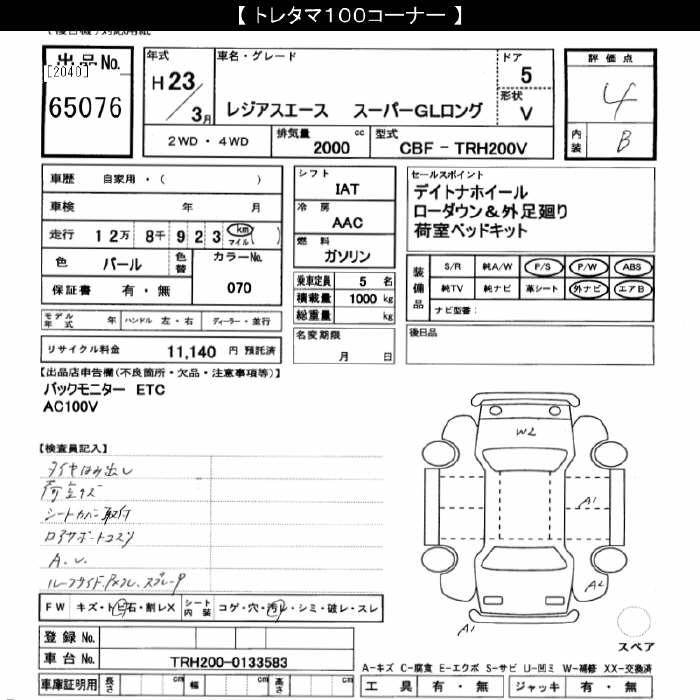 【 トレタマ１００コーナー 】
出品No.
[2040]
65076
年式
H 23 / 3月
車名・グレード
レジアスエース スーパーGLロング
ドア
5
形状
V
2WD ・ 4WD
排気量
2000 cc
型式
CBF - TRH200V
評価点
4
内装
B
車歴 自家用 ・ ( )
車検 年 月
走行 12万 8千 9 2 3 km マイル ( )
色 パール
色替
カラーNo.
070
保証書 有 ・ 無
モデル年式 年 ハンドル 左 ・ 右 ディーラー ・ 並行
リサイクル料金 11,140 円 預託済
シフト
IAT
冷房
AAC
燃料
ガソリン
乗車定員 5 名
積載量 1000 kg
総重量 kg
名変期限
月 日
セールスポイント
デイトナホイール
ローダウン＆外足廻り
荷室ベッドキット
装備品
S/R 純A/W P/S P/W ABS
純TV 純ナビ 革シート 外ナビ エアB
ナビ型番：
後日品
【出品店申告欄(不良箇所・欠品・注意事項等)】
バックモニター ETC
AC100V
【検査員記入】
タイヤはみ出し
荷室キズ
シートカバー取付
ロアサポートコスリ
A.U.
W2
A1
A2
A1
スペア
FW キズ・トビ石・割レX
シート内装 コゲ・穴・汚レ・シミ・破レ・スレ
登録 No.
車台 No. TRH200-0133583
車庫証明用 長さ cm 幅 cm 高さ cm
A-キズ C-腐食 E-エクボ S-サビ U-凹ミ W-補修 XX-交換済
工具 有 ・ 無 ジャッキ 有 ・ 無